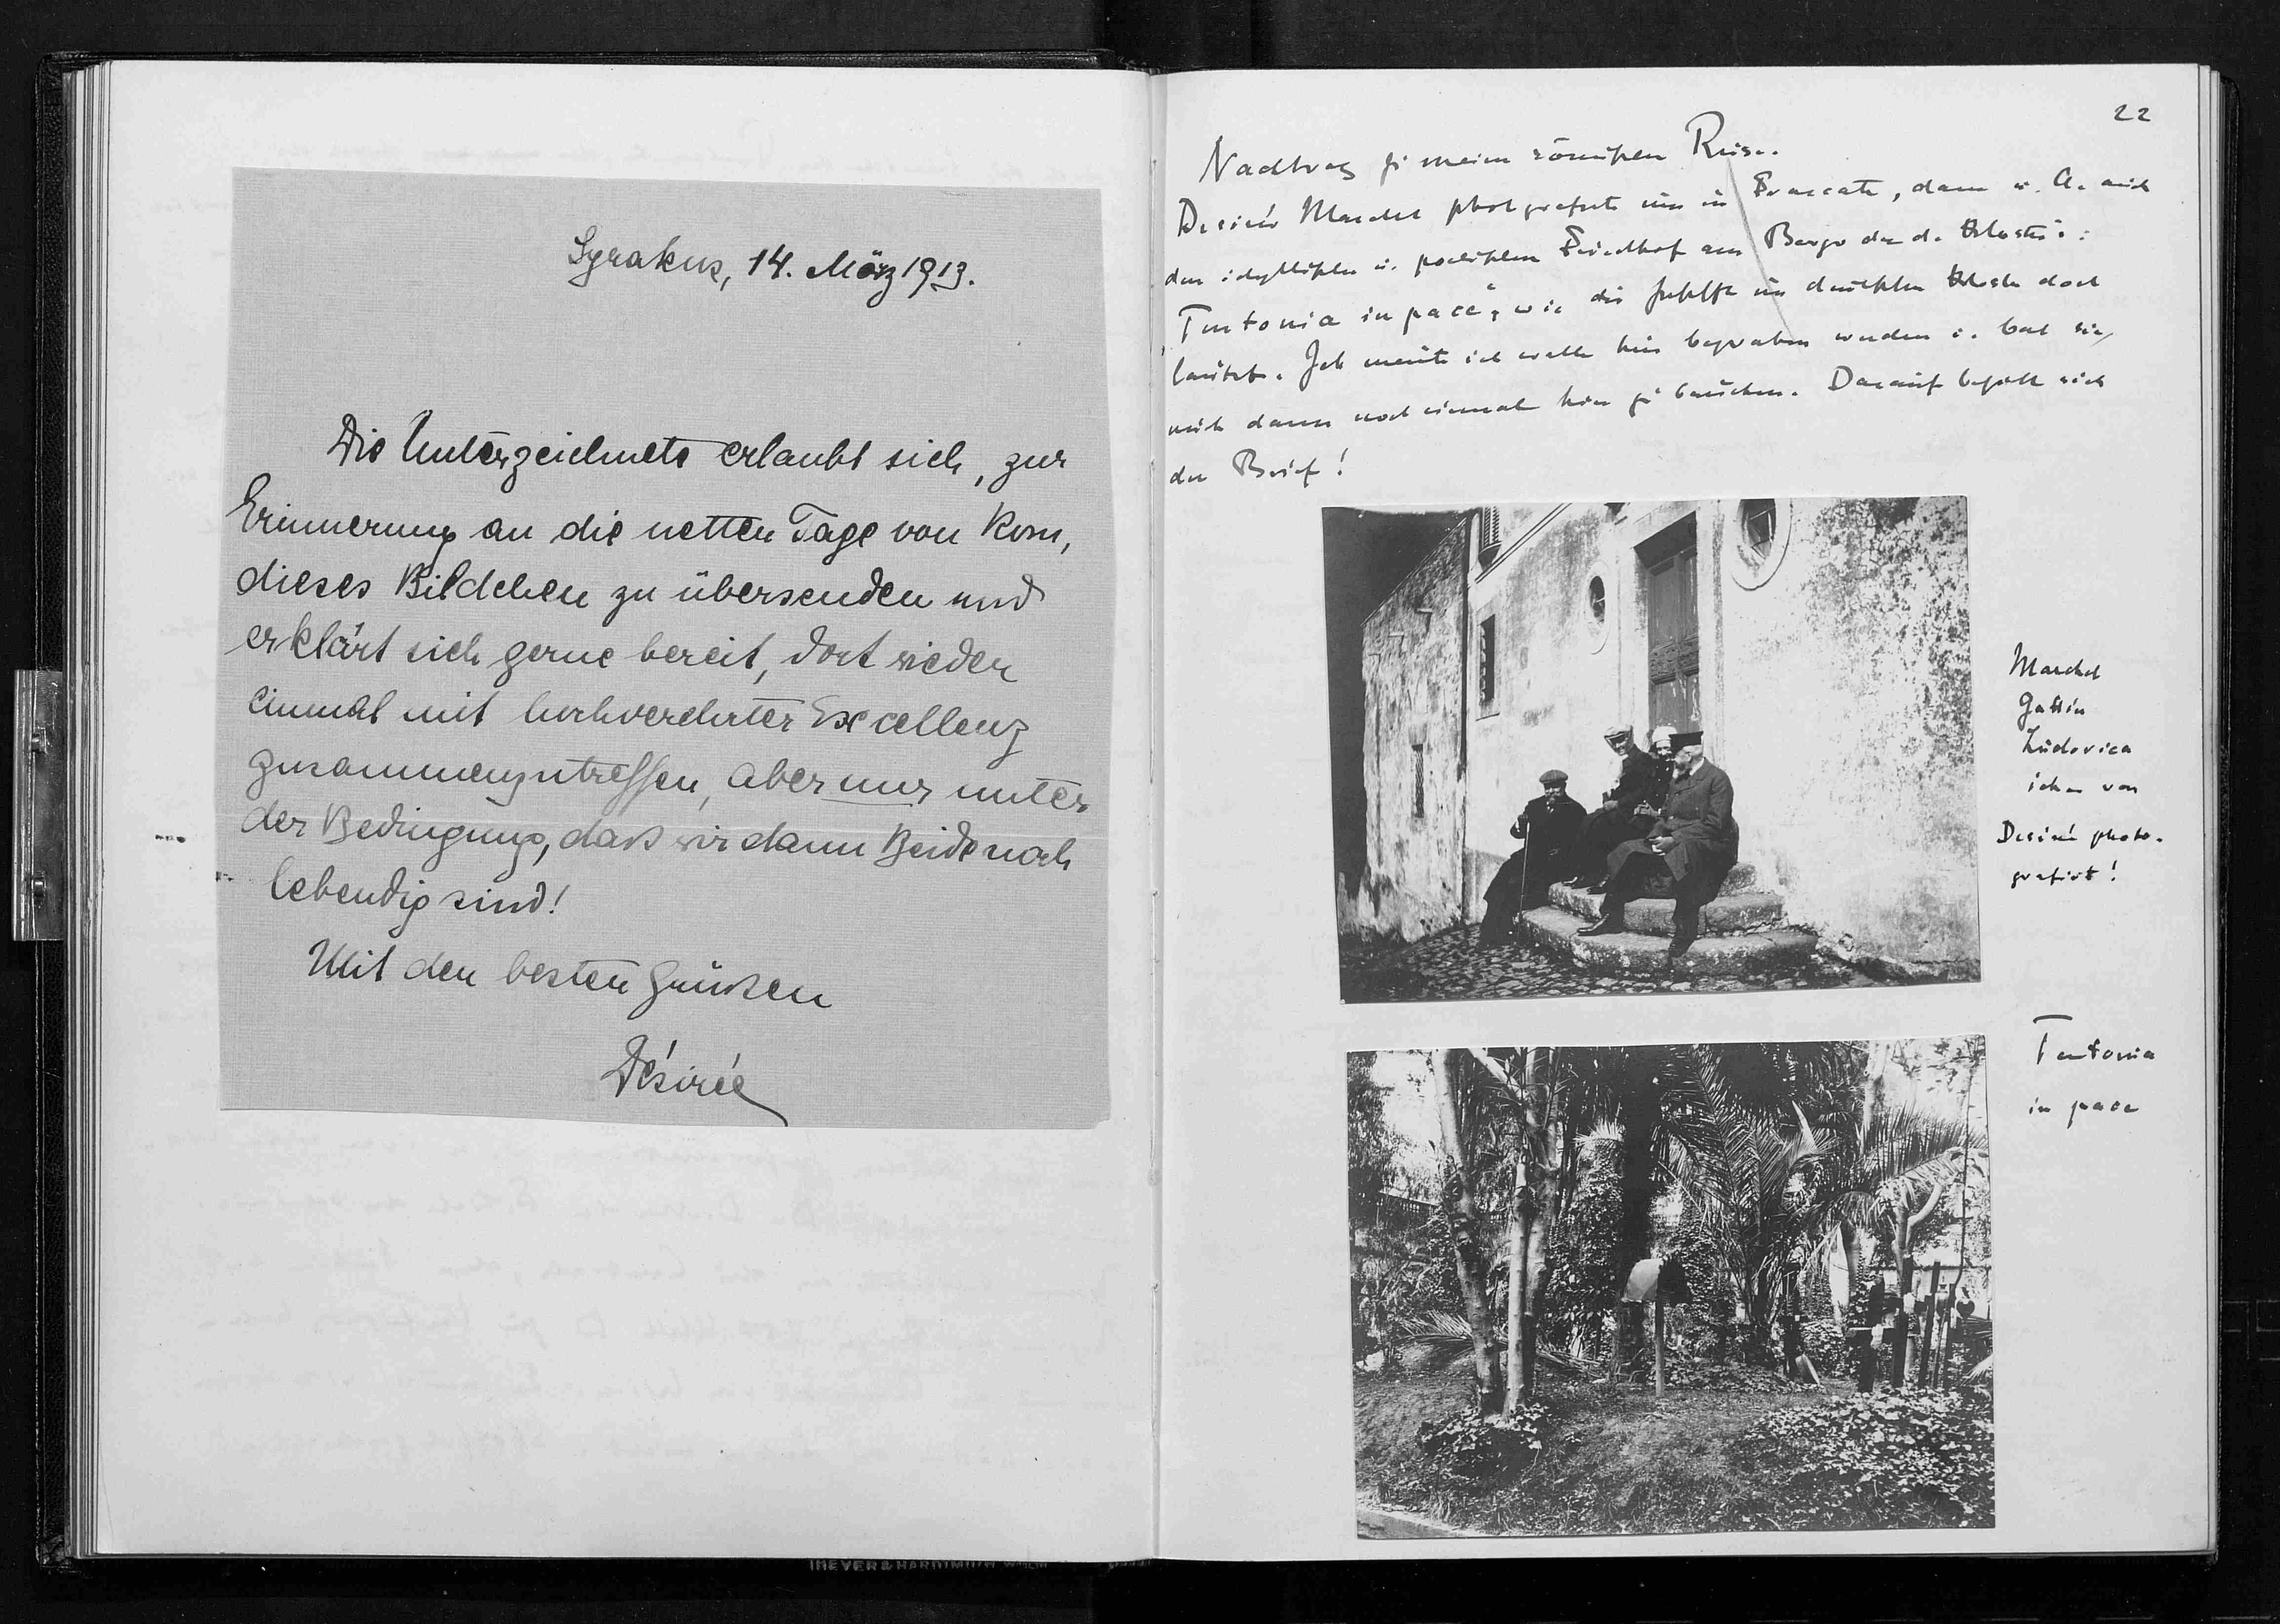 Syrakus, 14. März 1913.
Die Unterzeichnete erlaubt sich, zur
Erinnerung an die netten Tage von Rom,
dieses Bildchen zu übersenden und
erklärt sich gerne bereit, dort wieder
einmal mit hochverehrter Excellenz
zusammenzutreffen, aber nur unter
der Bedingung, daß wir dann Beide noch
lebendig sind!
Mit den besten Grüßen
Désirée
22
Nachtrag zu meiner römischen Reise.
Desirée photografirte uns in Frascati, dann u. A. auch
den idyllischen u. poetischen Friedhof am Berge der d. Klosters:
Teutonia in pace", wie die Inschrift im deutschen Kloster dort
lautet. Ich meinte ich wolle hier begraben werden u. bat sie,
mich dann noch einmal hier zu besuchen. Darauf bezieht sich
der Brief!
Gattin
Ludovica
ich von
Desirée photo-
grafirt!
Teutonia
in pace